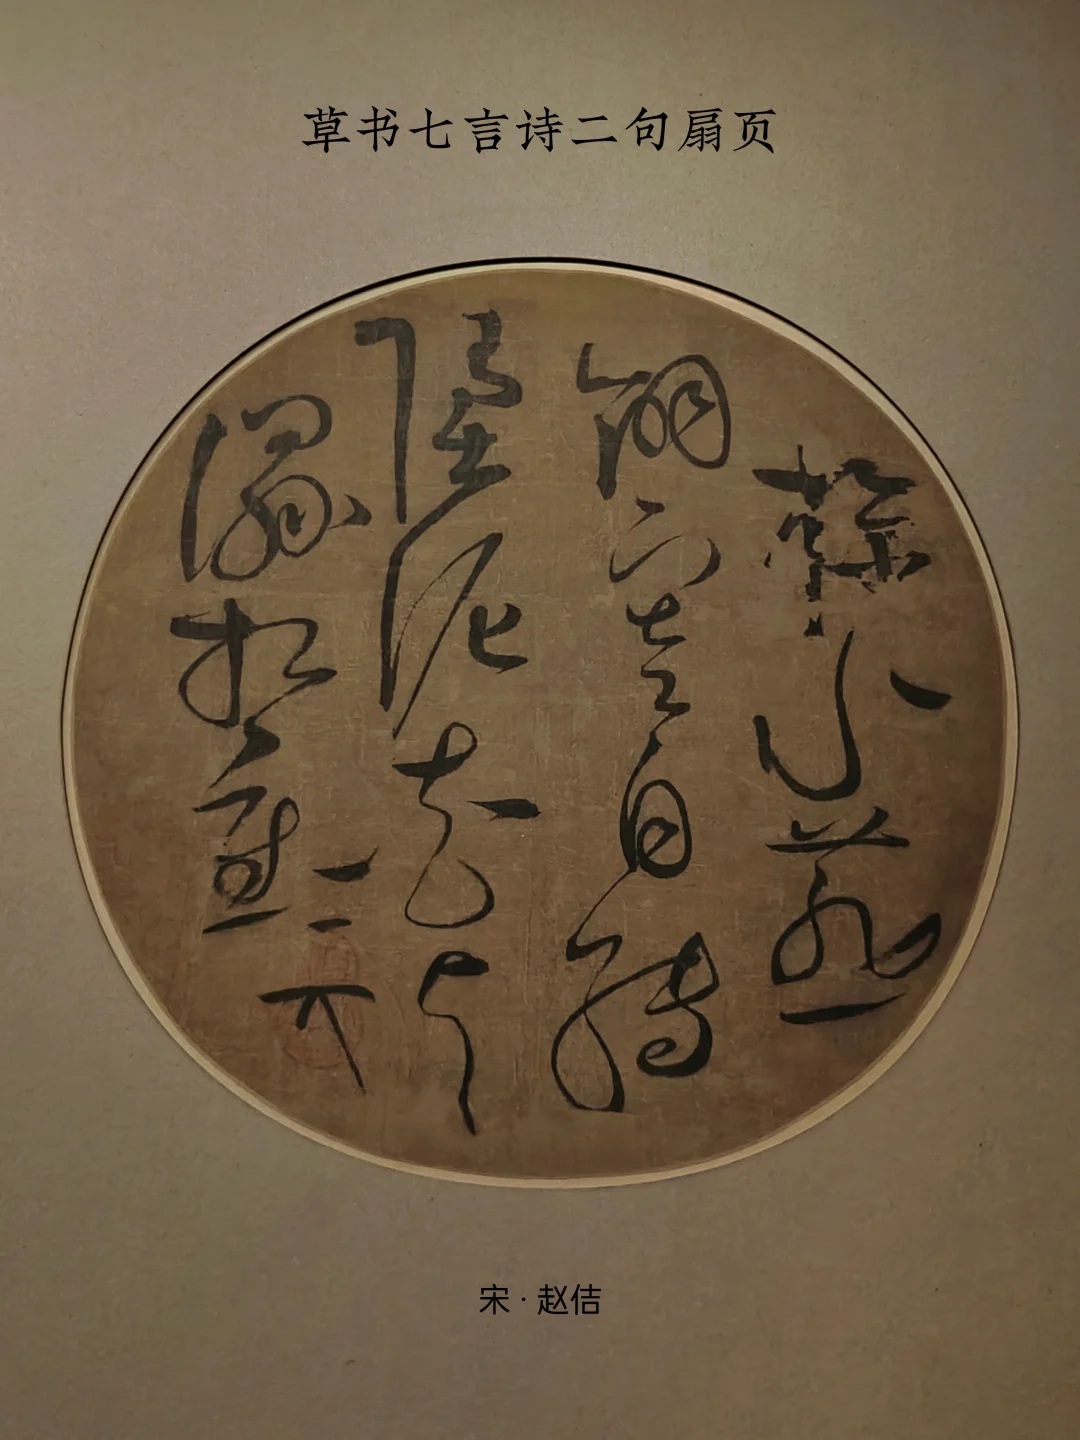 草书七言诗二句扇页
掠水燕
翎寒自转
堕泥花片
湿相重
宋·赵佶